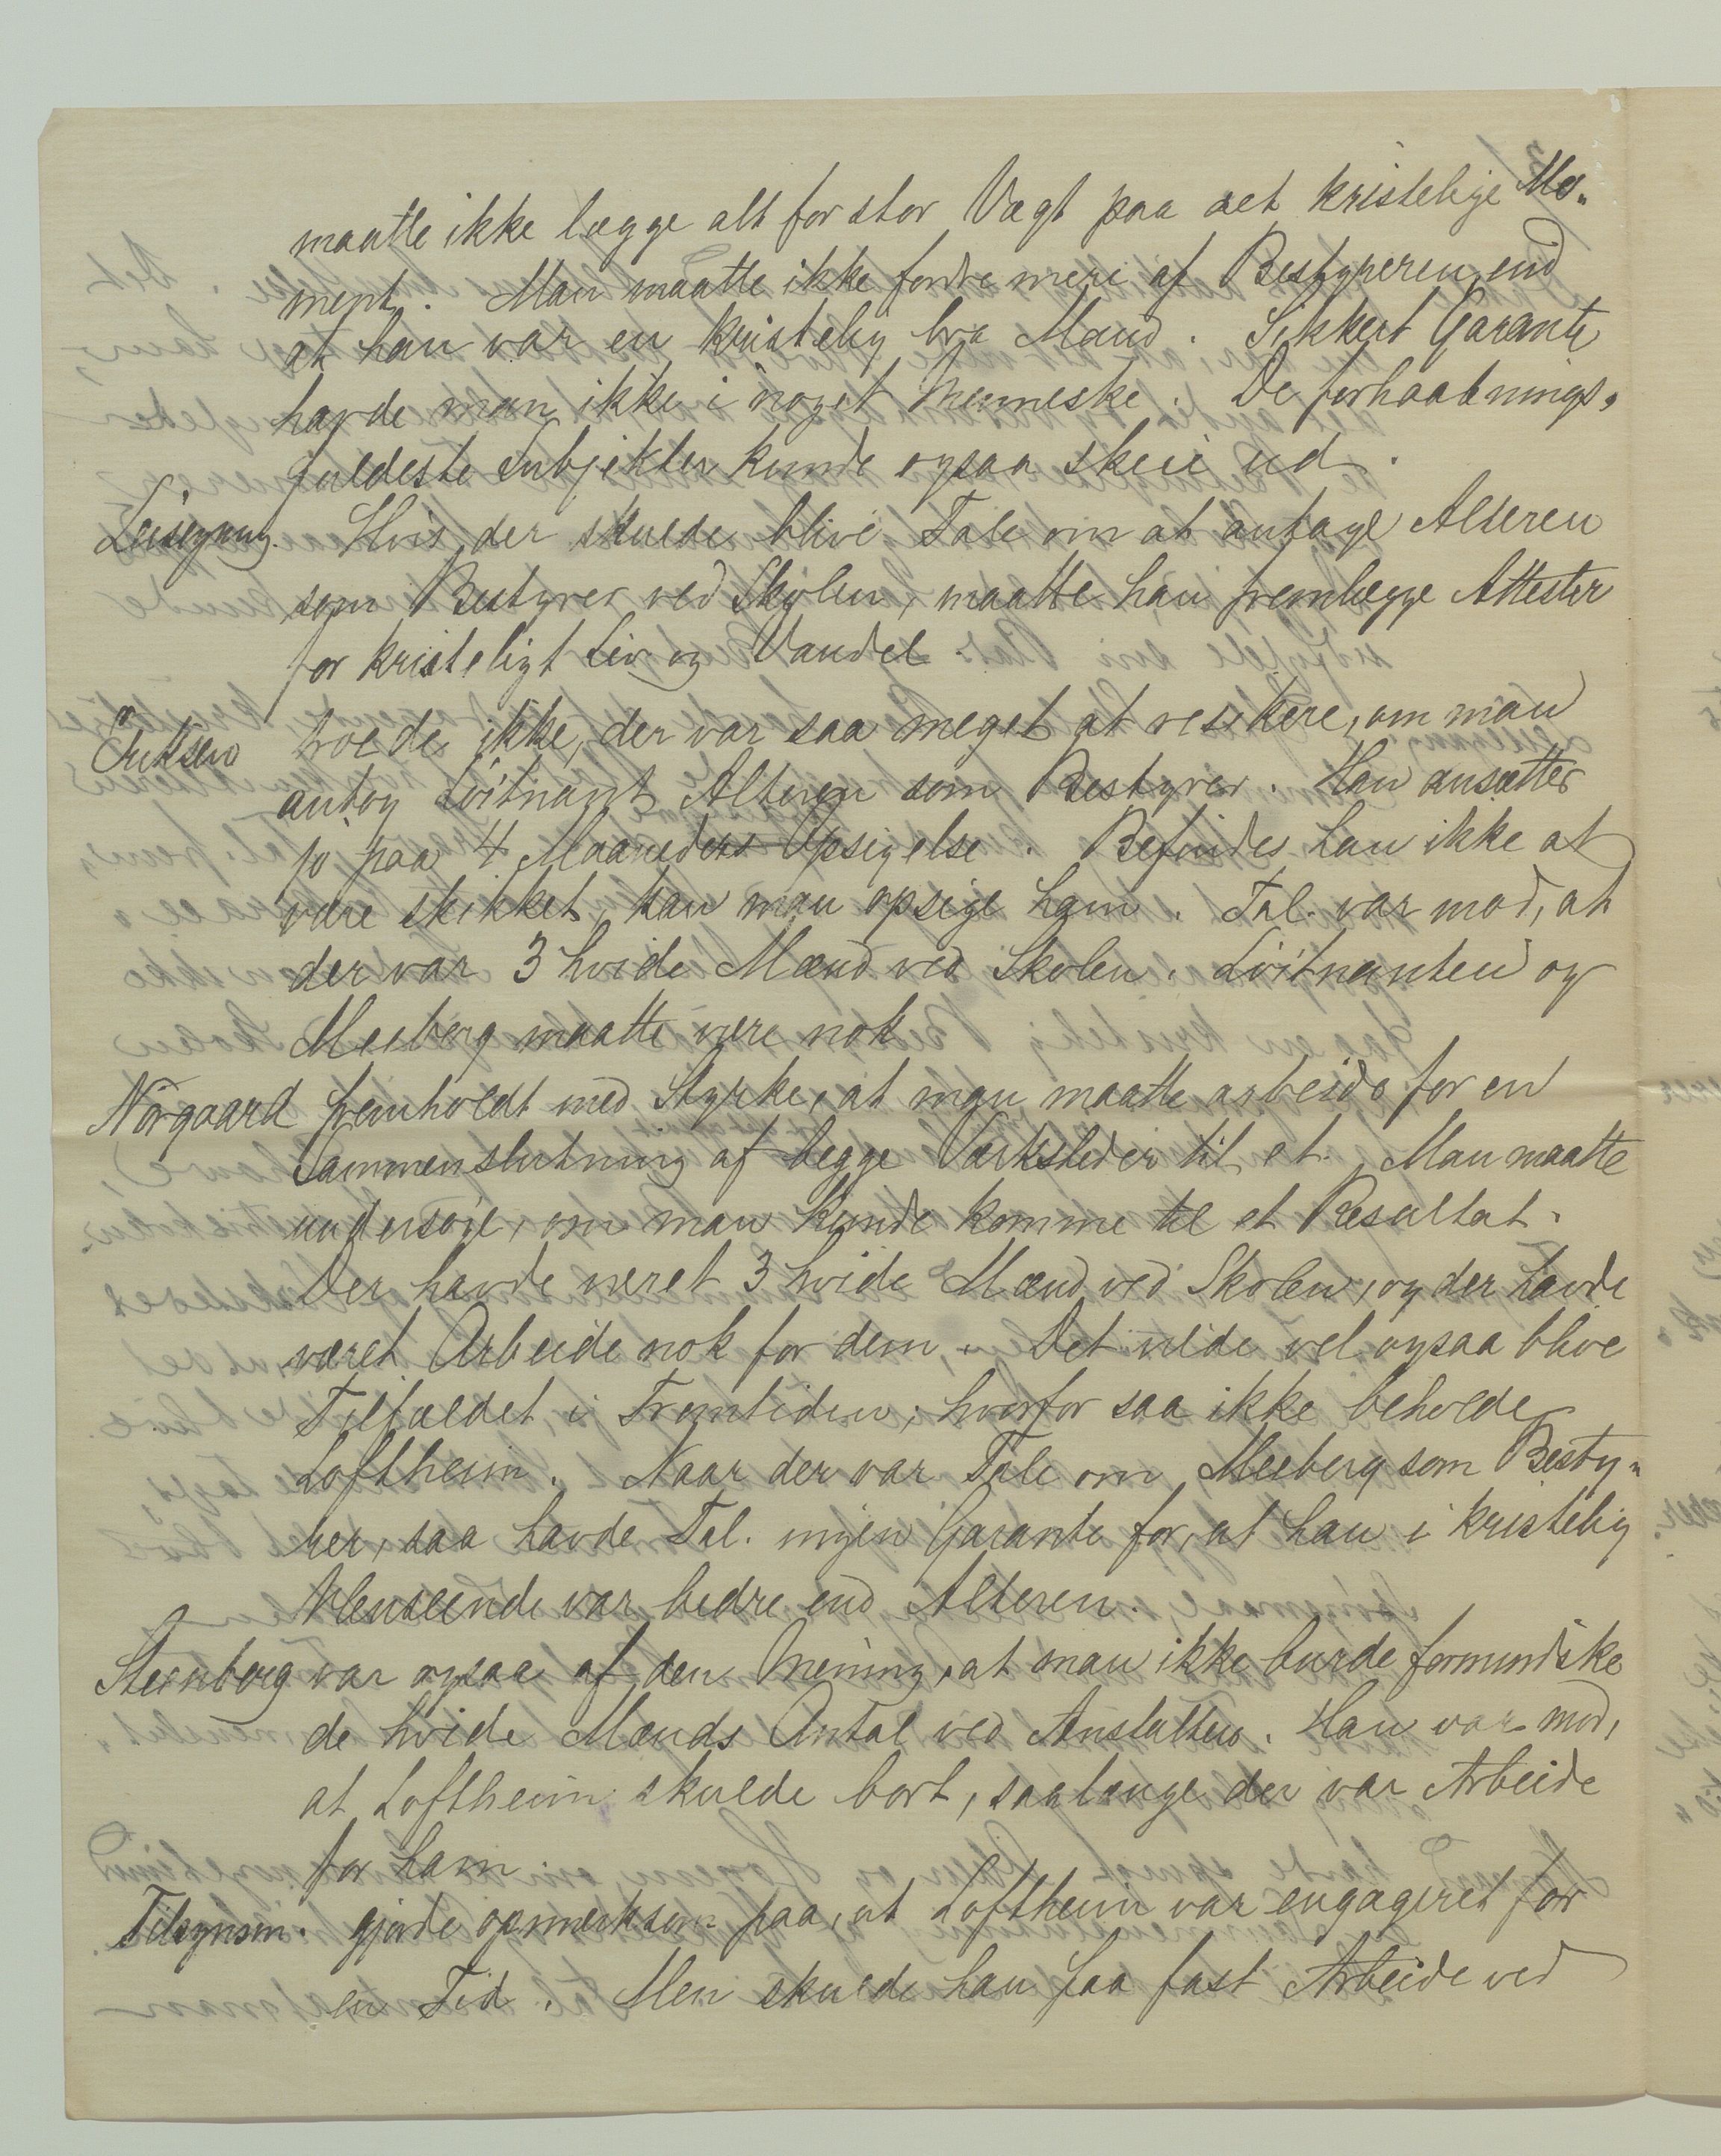 maatte ikke lægge alt for stor Vægt paa det kristelige Mo-
ment. Man maatte ikke fordre mere af Bestyreren, end
at han var en kristelig bra Mand. Sikkert Garanti
havde man ikke i noget Menneske. De forhaabnings-
fuldeste Subjekter kunde ogsaa skeie ud.
Leisegang. Hvis der skulde blive Tale om at antage Alteren
som Bestyrer ved Skolen, maatte han fremlægge Attester
for kristeligt Liv og Vandel.
Eriksen troede ikke, der var saa meget at resikere, om man
antog Löitnant Alteren som Bestyrer. Han ansættes
jo paa 4 Maaneders Opsigelse. Befindes han ikke at
være skikket, kan man opsige ham. Tal. var mod, at
der var 3 hvide Mænd ved Skolen. Löitnanten og
Meeberg maatte være nok.
Nörgaard fremholdt med Styrke, at man maatte arbeide for en
Sammenslutning af begge Værksteder til et. Man maatte
undersöge, om man kunde komme til et Resultat.
Der havde været 3 hvide Mænd ved Skolen, og der havde
været Arbeide nok for dem. Det vilde vel ogsaa blive
Tilfældet i Fremtiden; hvorfor saa ikke beholde
Loftheim. Naar der var Tale om Meeberg som Besty-
rer, saa havde Tal. ingen Garanti for, at han i kristelig
Henseende var bedre end Alteren.
Steinberg var ogsaa af den Mening, at man ikke burde formindske
de hvide Mænds Antal ved Anstalten. Han var mod,
at Loftheim skulde bort, saalænge der var Arbeide
for ham.
Tilsynsm. gjorde opmerksom paa, at Loftheim var engageret for
en Tid. Men skulde han faa fast Arbeide ved